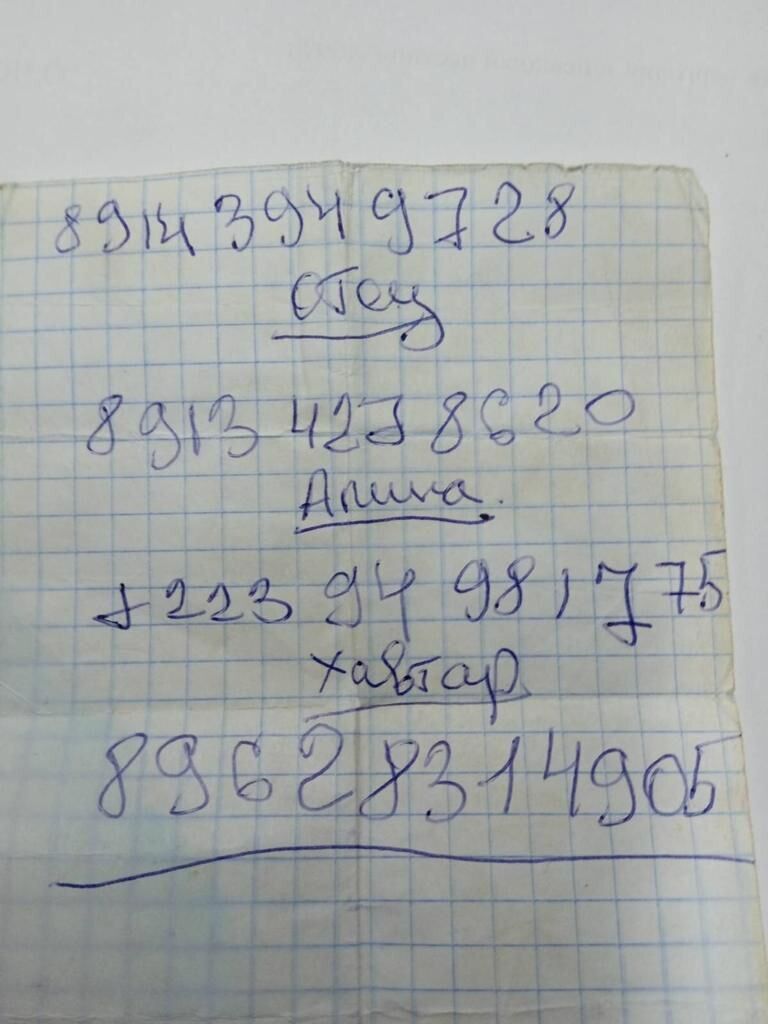 8914 394 9728
Отец
8913 427 8620
Алина.
+223 94 98 1 7 75
Хавтар
89628314905